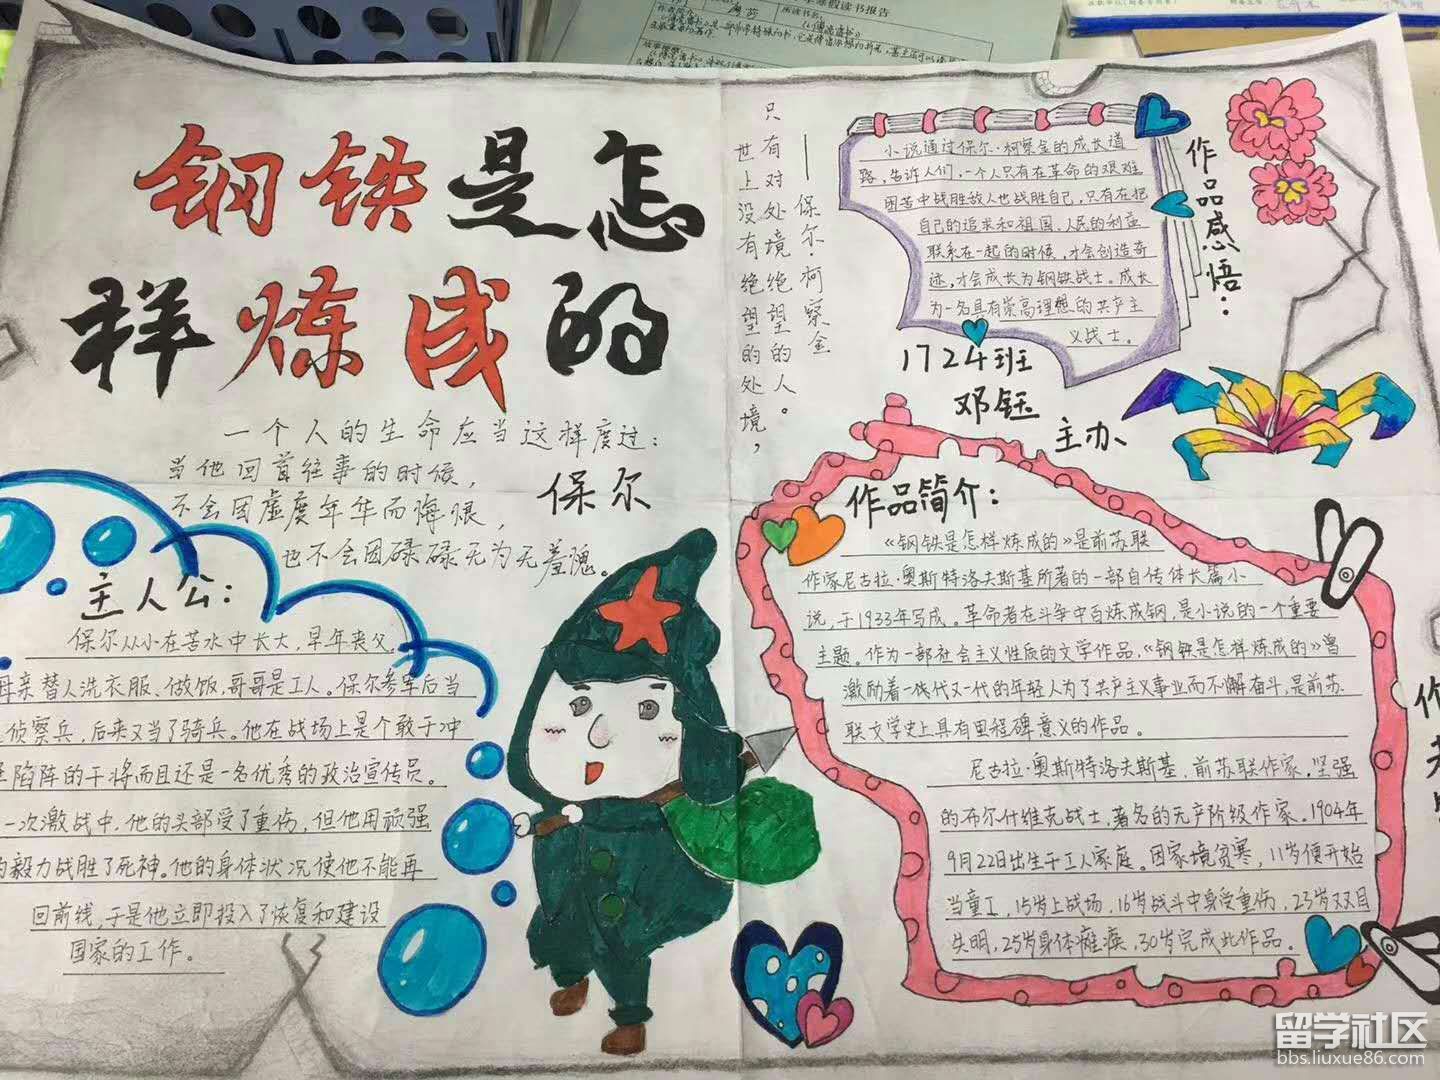 寒假读书报告
钢铁是怎
样炼成的
一个人的生命应当这样度过：
当他回首往事的时候，
不会因虚度年华而悔恨，
也不会因碌碌无为无羞愧。
保尔
主人公：
保尔从小在苦水中长大，早年丧父。
母亲替人洗衣服、做饭，哥哥是工人。保尔参军后当
侦察兵，后来又当了骑兵。他在战场上是个敢于冲
陷阵的干将而且还是一名优秀的政治宣传员。
一次激战中，他的头部受了重伤，但他用顽强
毅力战胜了死神。他的身体状况使他不能再
回前线，于是他立即投入了恢复和建设
国家的工作。
只有对处境绝望的人。
世上没有绝望的处境，
——保尔·柯察金
作品感悟：
小说通过保尔·柯察金的成长道
路，告诉人们，一个人只有在革命的艰难
困苦中战胜敌人也战胜自己，只有在把
自己的追求和祖国、人民的利益
联系在一起的时候，才会创造奇
迹，才会成长为钢铁战士。成长
为一名具有崇高理想的共产主
义战士。
1724班
邓钰
主办
作品简介：
《钢铁是怎样炼成的》是前苏联
作家尼古拉·奥斯特洛夫斯基所著的一部自传体长篇小
说，于1933年写成。革命者在斗争中百炼成钢，是小说的一个重要
主题。作为一部社会主义性质的文学作品，《钢铁是怎样炼成的》曾
激励着一代代又一代的年轻人为了共产主义事业而不懈奋斗，是前苏
联文学史上具有里程碑意义的作品。
尼古拉·奥斯特洛夫斯基，前苏联作家。坚强
的布尔什维克战士，著名的无产阶级作家。1904年
9月22日出生于工人家庭。因家境贫寒，11岁便开始
当童工，15岁上战场，16岁战斗中身受重伤，23岁双目
失明，25岁身体瘫痪，30岁完成此作品。
作
留学社区
bbs.liuxue86.com